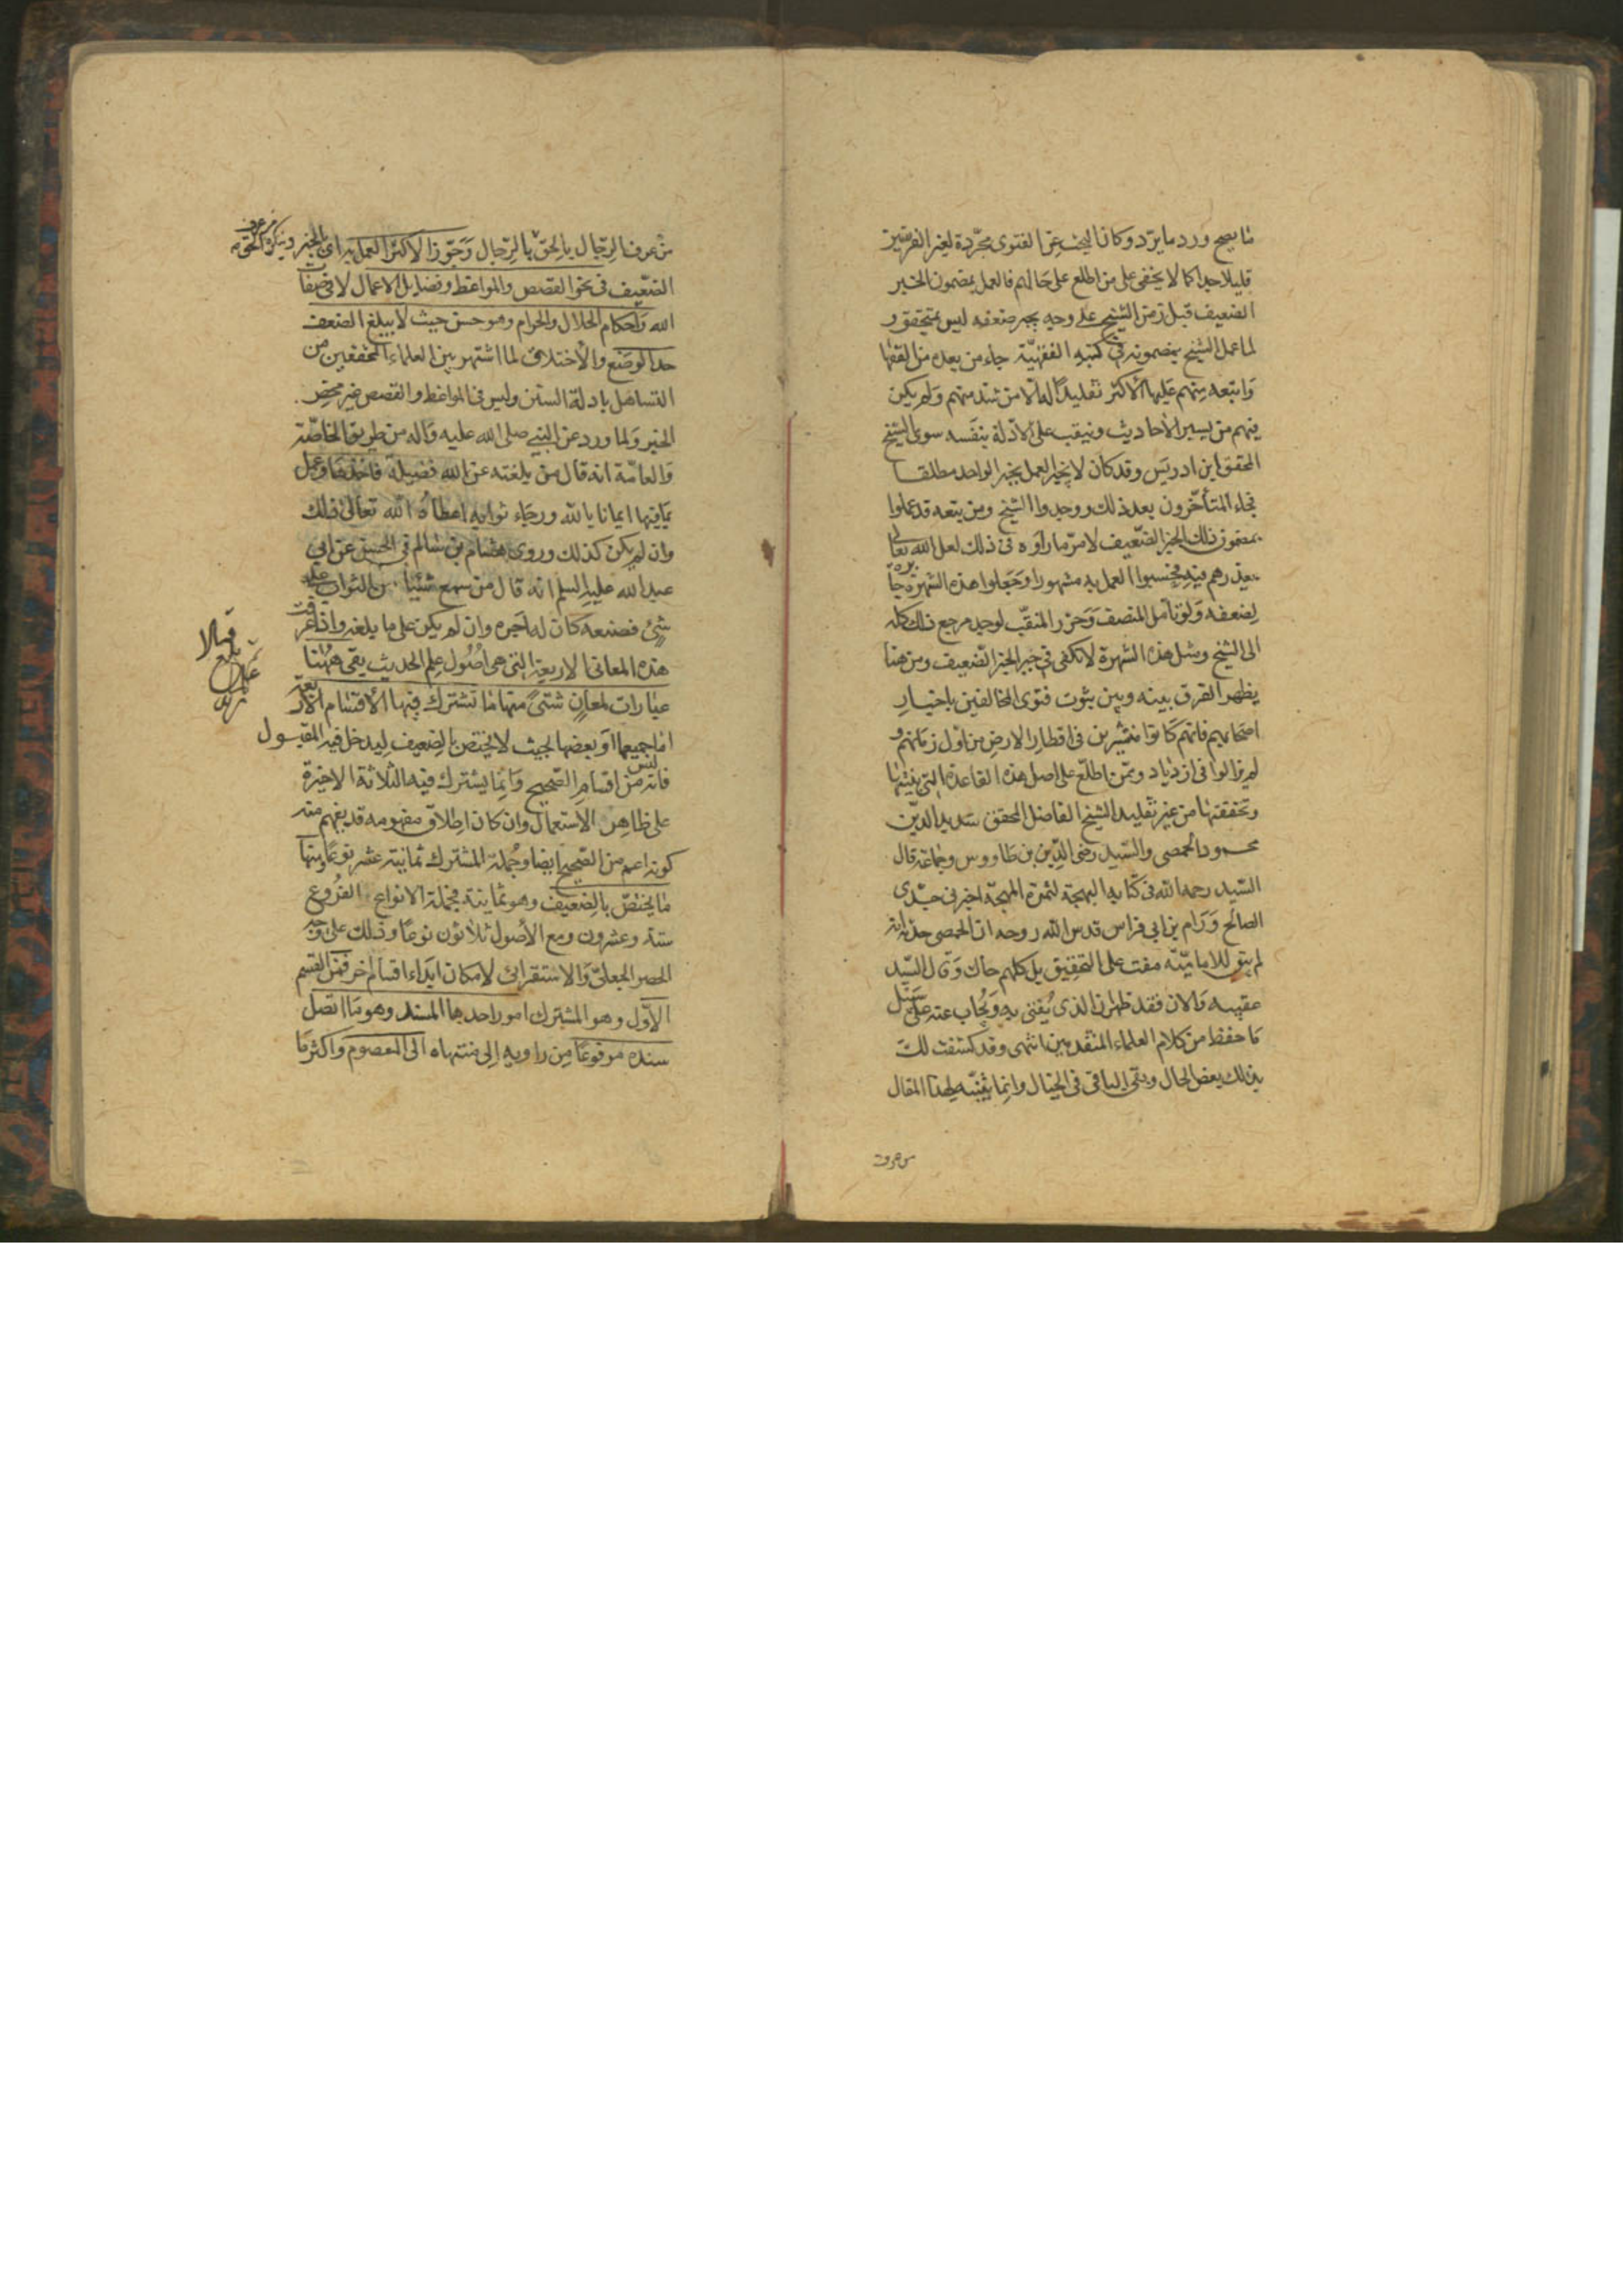 ما يصح ورد ما يرد وكان البحث عن الفتوى مجردة لغير الفريقين
قليلا جدا كما لا يخفى على من اطلع على حالهم فالعمل بمضمون الخبر
الضعيف قبل زمن الشيخ على وجه يجبر ضعفه ليس بمتحقق و
لما عمل الشيخ بمضمونه في كتبه الفقهية جاء من بعده من الفقها
واتبعه منهم عليها الاكثر تقليدا له الا من شذ منهم ولم يكن
فيهم من يسبر الاحاديث وينقب على الادلة بنفسه سوى الشيخ
المحقق ابن ادريس وقد كان لا يجيز العمل بخبر الواحد مطلقا
فجاء المتأخرون بعد ذلك ووجدوا الشيخ ومن يتبعه قد عملوا
بمضمون ذلك الخبر الضعيف لامر ما راوه في ذلك لعل الله تعالى
يعذرهم فيه فحسبوا العمل به مشهورا وجعلوا هذه الشهرة جابرة
لضعفه ولو تأمل المنصف وحرر المنقب لوجد مرجع ذلك كله
الى الشيخ ومثل هذه الشهرة لا تكفي في جبر الخبر الضعيف ومن هنا
يظهر الفرق بينه وبين ثبوت فتوى المخالفين باخبار
اصحابهم فانهم كانوا منتشرين في اقطار الارض من اول زمانهم و
لم يزالوا في ازدياد وممن اطلع على اصل هذه القاعدة التي بينتها
وتحققتها من غير تقليد الشيخ الفاضل المحقق سديد الدين
محمود الحمصي والسيد رضي الدين بن طاووس وجماعة قال
السيد رحمه الله في كتابه البهجة لثمرة المهجة اخبرني جدي
الصالح ورام بن ابي فراس قدس الله روحه ان الحمصي حدثه انه
لم يبق للامامية مفت على التحقيق بل كلهم حاك وقال السيد
عقيبه والان فقد ظهر ان الذي يفتى به ويجاب عنه على سبيل
ما حفظ من كلام العلماء المتقدمين انتهى وقد كشفت لك
بذلك بعض الحال وبقي الباقي في الخيال وانما يتنبه لهذا المقال
من عرف
من عرف الرجال بالحق بالرجال وجوز الاكثر العمل به اي بالخبر وينكر الحق من عرف
الضعيف في نحو القصص والمواعظ وفضايل الاعمال لا في صفات
الله واحكام الحلال والحرام وهو حسن حيث لا يبلغ الضعف
حد الوضع والاختلاق لما اشتهر بين العلماء المحققين من
التساهل بادلة السنن وليس في المواعظ والقصص غير محض
الخير ولما ورد عن النبي صلى الله عليه واله من طريق الخاصة
والعامة انه قال من بلغته عن الله فضيلة فاخذها وعمل
بما فيها ايمانا بالله ورجاء ثوابه اعطاه الله تعالى ذلك
وان لم يكن كذلك وروى هشام بن سالم في الحسن عن ابي
عبد الله عليه السلم انه قال من سمع شيئا من الثواب على
شئ فصنعه كان له اجره وان لم يكن على ما بلغه واذا عرفت
هذه المعاني الاربعة التي هي اصول علم الحديث بقي هنا
عبارات لمعان شتى منها ما تشترك فيها الاقسام الاربعة
اما جميعها او بعضها بحيث لا يختص بالضعيف ليدخل فيه المقبول
فانه ليس من اقسام الصحيح وانما يشترك فيه الثلاثة الاخيرة
على ظاهر الاستعمال وان كان اطلاق مفهومه قد يفهم منه
كونه اعم من الصحيح ايضا وجملة المشترك ثمانية عشر نوعا ومنها
ما يختص بالضعيف وهو ثمانية فجملة الانواع الفروع
ستة وعشرون ومع الاصول ثلاثون نوعا وذلك على وجه
الحصر الجعلي والاستقرائي لامكان ابداء اقسام اخر فمن القسم
الاول وهو المشترك امور احدها المسند وهو ما اتصل
سنده مرفوعا من راويه الى منتهاه الى المعصوم واكثر ما